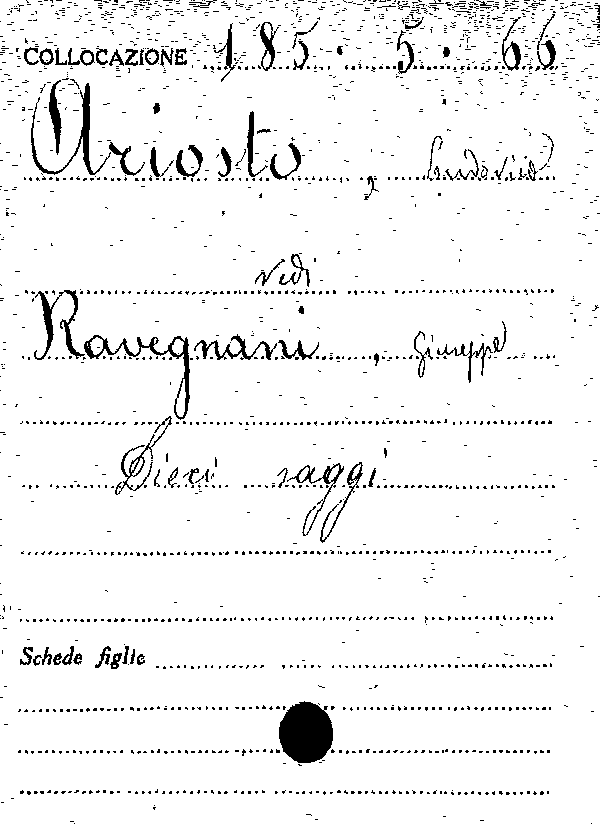 COLLOCAZIONE 185. 5. 66
Ariosto, Ludovico
vedi
Ravegnani, Giuseppe
Dieci saggi
Schede figlie